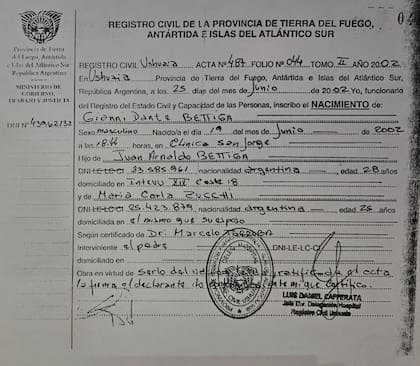 REGISTRO CIVIL DE LA PROVINCIA DE TIERRA DEL FUEGO,
ANTÁRTIDA E ISLAS DEL ATLÁNTICO SUR
Provincia de Tierra
del Fuego, Antártida
e Islas del Atlántico Sur
República Argentina
MINISTERIO DE
GOBIERNO,
TRABAJO Y JUSTICIA
DNI Nº 43962132
REGISTRO CIVIL Ushuaia ACTA Nº 487 FOLIO Nº 044 TOMO II AÑO 2002
En Ushuaia Provincia de Tierra del Fuego, Antártida e Islas del Atlántico Sur,
República Argentina, a los 25 días del mes de Junio de 2002 Yo, funcionario
del Registro del Estado Civil y Capacidad de las Personas, inscribo el NACIMIENTO de:
Gianni Dante BETTIGA
Sexo masculino Nacido/a el día 19 del mes de Junio de 2002
a las 18:44 horas, en Clínica San Jorge
Hijo de Juan Arnaldo BETTIGA
DNI-LE-LC-CI 23.585.961 nacionalidad argentina, edad 28 años
domiciliado en Intevu XIV Casa 18
y de María Carla ZUCCHI
DNI-LE-LC-CI 25.423.879 nacionalidad argentina, edad 25 años
domiciliada en el mismo que su esposo
Según certificado de Dr. Marcelo
Interviene el padre DNI-LE-LC-CI
domiciliado en
Obra en virtud de serlo del
la firma el declarante certifico.
LUIS DANIEL ZAFFERATA
Jefe Div. Delegación Hospital
Registro Civil Ushuaia